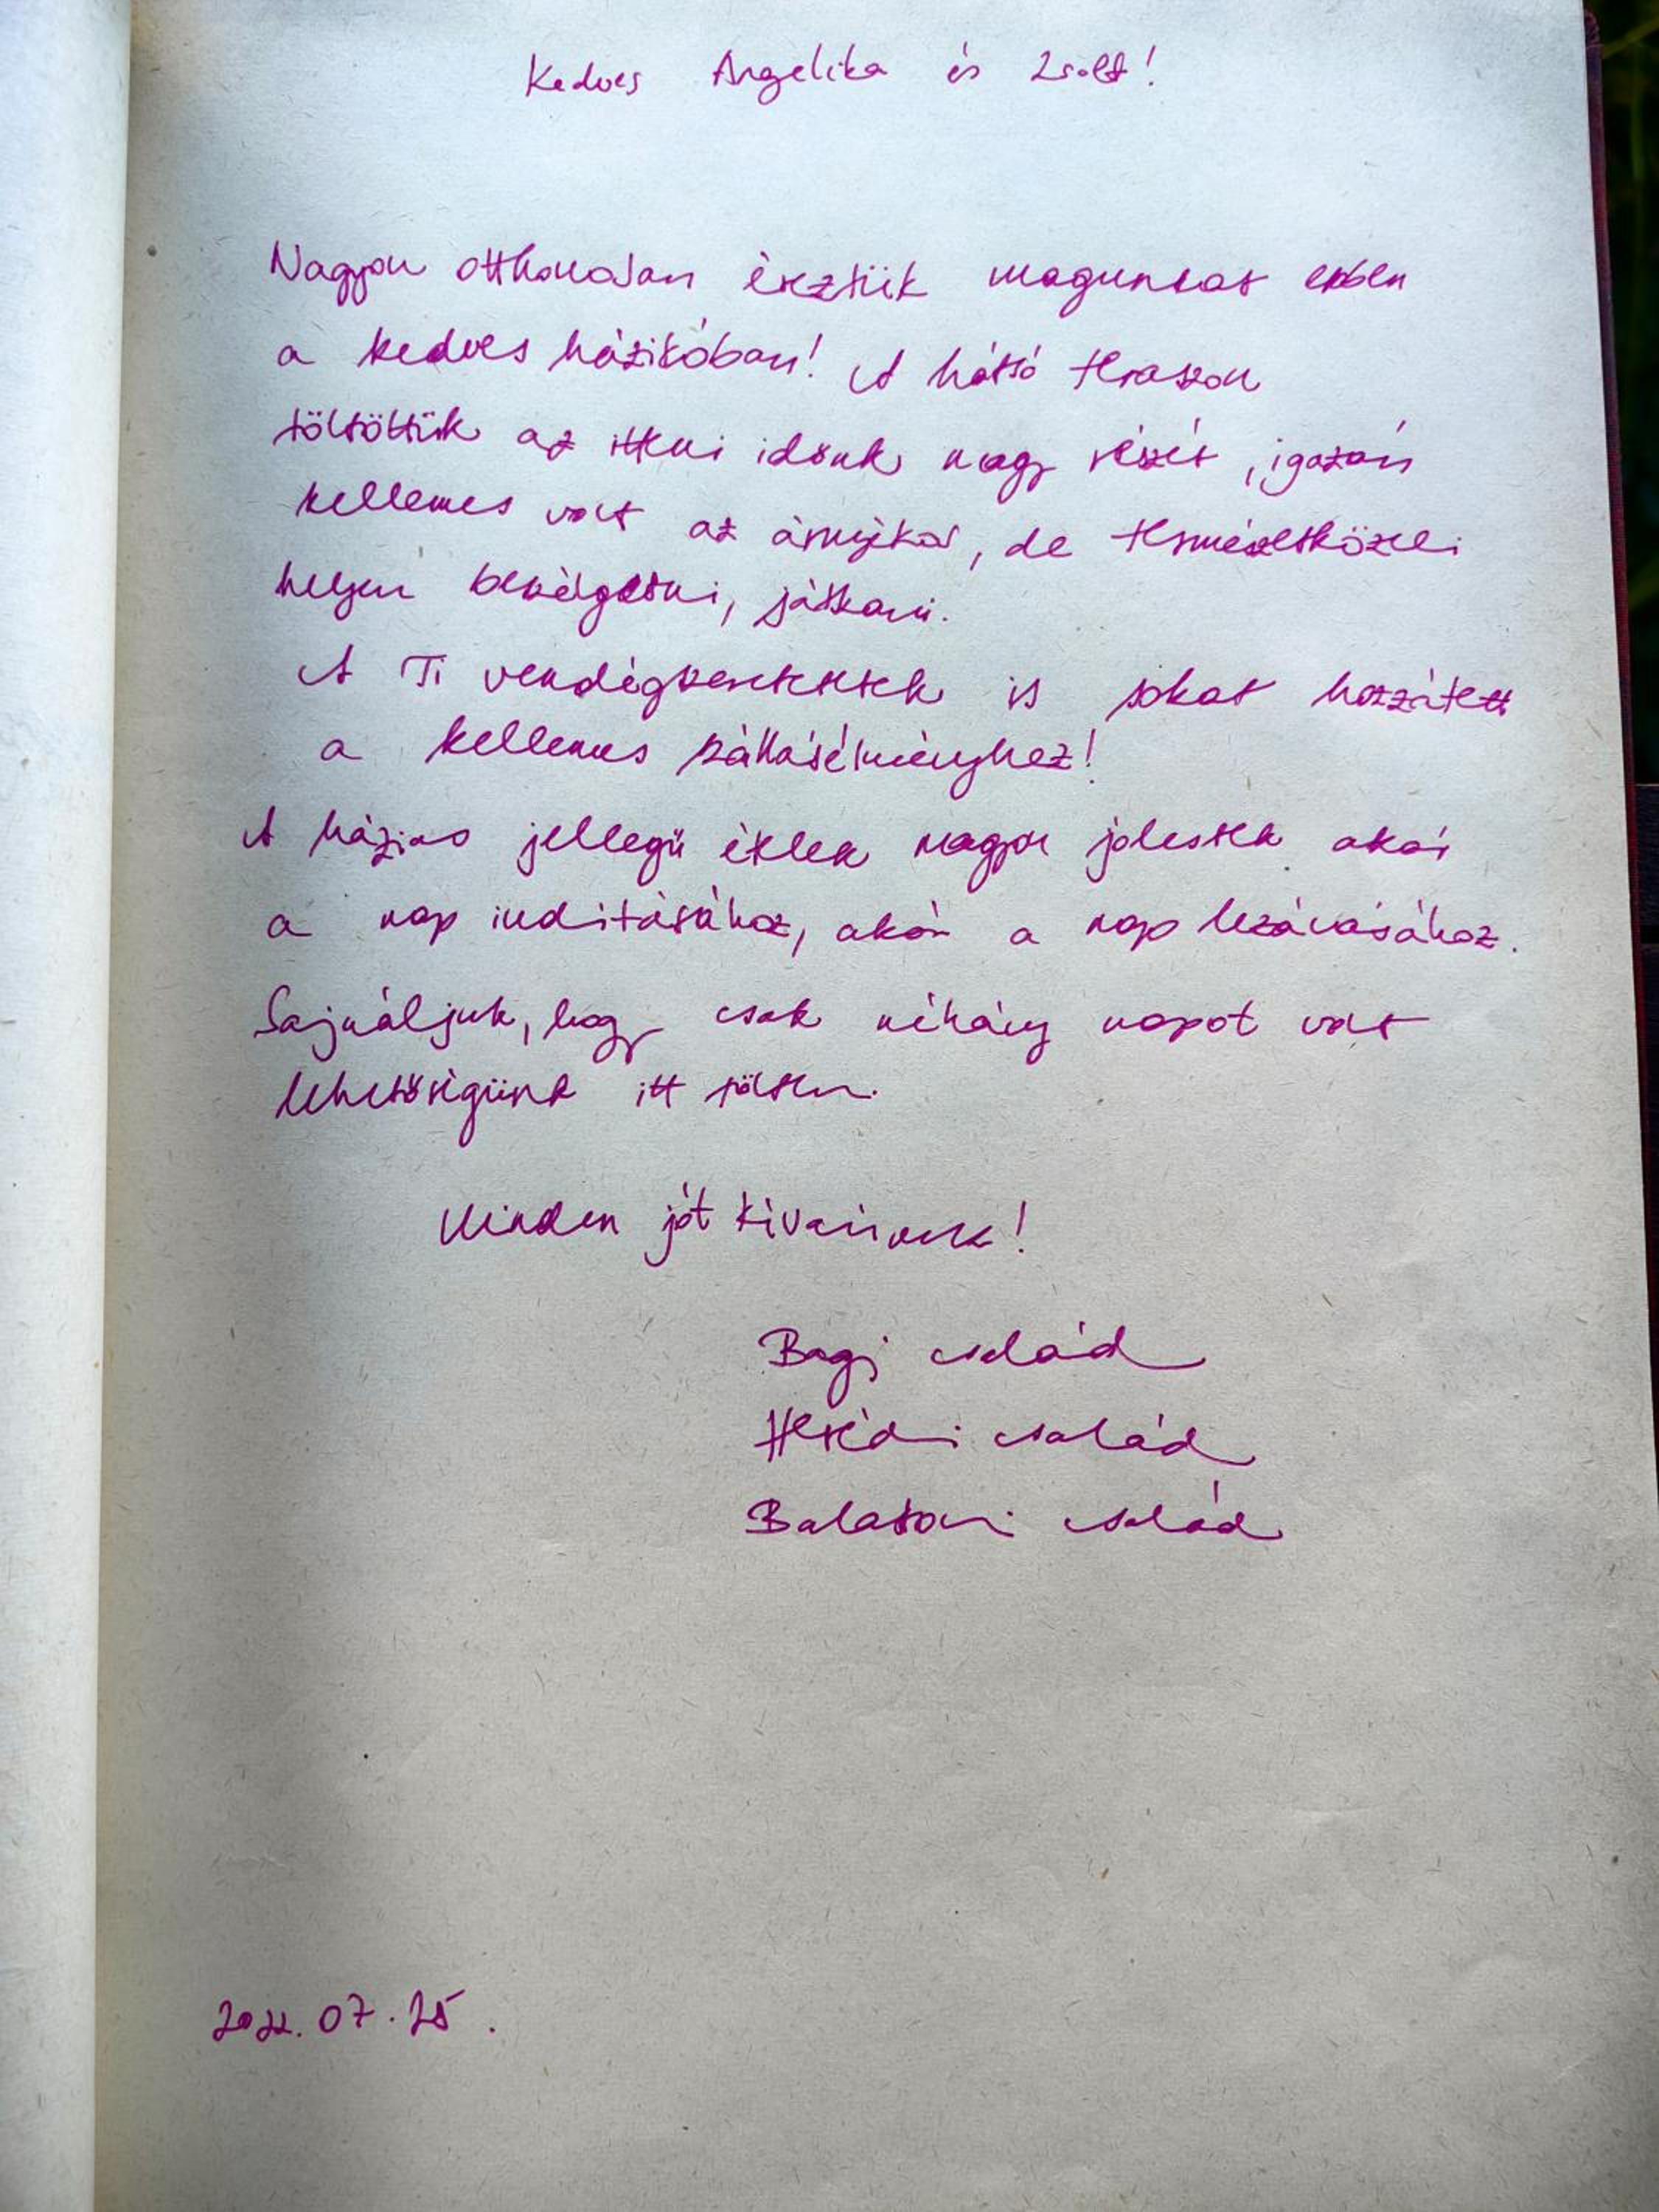 Kedves Angelika és Zsolt!
Nagyon otthonosan éreztük magunkat ebben
a kedves házikóban! A hátsó teraszon
töltöttük az itteni időnk nagy részét, igazán
kellemes volt az árnyékos, de természetközeli
helyen beszélgetni, játszani.
A Ti vendégszeretetetek is sokat hozzátett
a kellemes szállásélményhez!
A házias jellegű ételek nagyon jólestek akár
a nap indításához, akár a nap lezárásához.
Sajnáljuk, hogy csak néhány napot volt
lehetőségünk itt tölteni.
Minden jót kívánunk!
Bagi család
család
Balatoni család
2022.07.25.